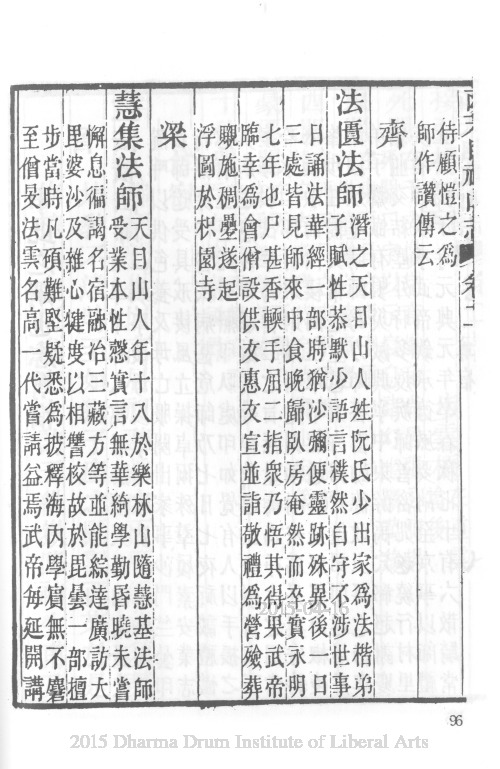 侍顧愷之為
師作讚傳云
齊
法匱法師潛天目山姓阮氏少出家為法楷弟
子賦性恭默少語言樸然自守不涉世事
日誦法華經一部時猶沙彌便靈跡殊異後一日
三處皆見師來中食晚歸臥房奄然而卒實永明
七年也尸甚香輭手屈二指衆乃悟其得果武帝
臨幸為會僧設供文惠文宣並詣敬禮為營殯葬
嚫施稠疊遂起
浮圖於枳園寺
梁
慧集法師天目山人年十八於樂林山隨慧基法師
受業本性慤實言無華綺學勤昏曉未嘗
懈息徧謁名宿融洽三藏方等並能綜達廣訪大
毘婆沙及雜心犍度以相讐校故於毘曇一部擅
步當時凡碩難堅疑悉為披釋海内學賓無不麕
至僧旻法雲名高一代嘗請益焉武帝每延開講
96
2015-04-16
2015 Dharma Drum Institute of Liberal Arts